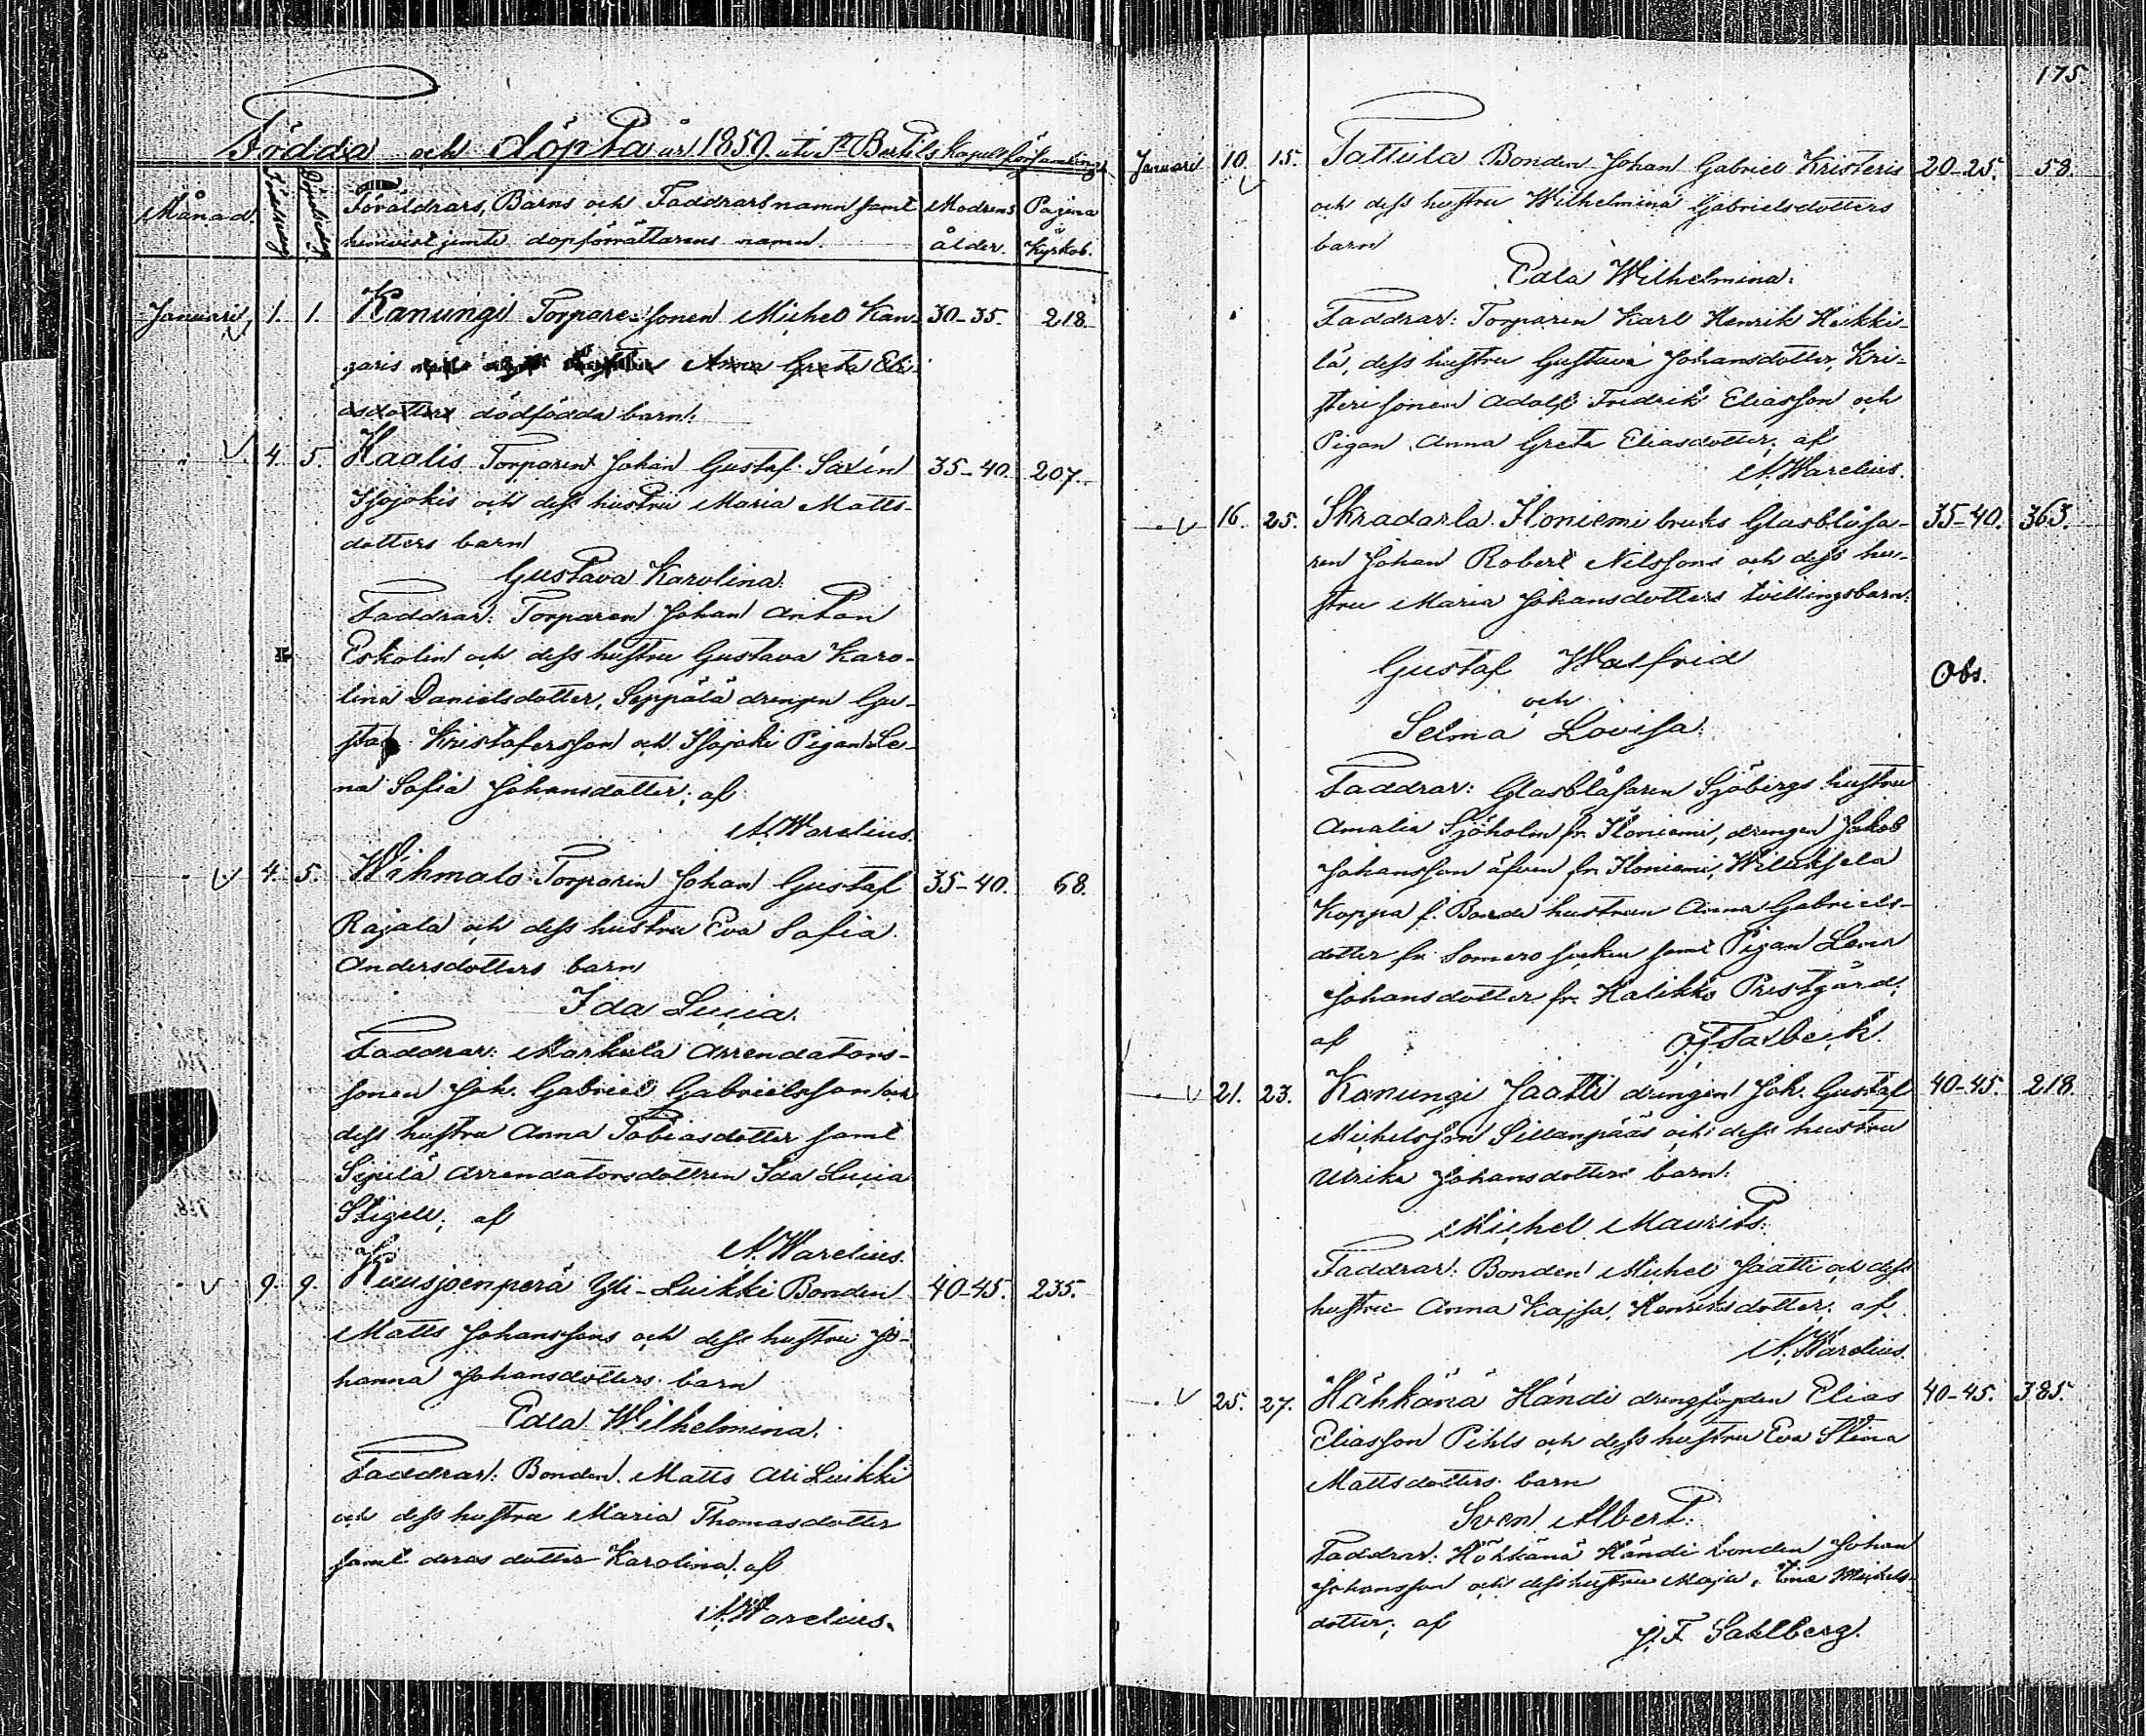 Födda och döpta år 1850 uti St Bertils Kapellförsamling.
Månad. Födelsedag Döpelsedag Föräldrars, Barns och Faddrars namn samt Modrens Pagina
hemvist jemte dopförrättarens namn. ålder. i Kyrkob.
Januari 1. 1. Kanungi Torpare-sonen Michel Kan- 30-35. 218.
garis Anna Greta Eli-
asdotters dödfödda barn.
4. 5. Haalis Torparen Johan Gustaf Saxén 35-40. 207.
Isojokis och dess hustru Maria Matts-
dotters barn
Gustava Karolina.
Faddrar: Torparen Johan Anton
Eskolin och dess hustru Gustava Karo-
lina Danielsdotter, Seppälä drengen Gu-
staf Kristofersson och Isojoki Pigan Le-
na Sofia Johansdotter; af
A. Warelius.
4. 5. Wihmalo Torparen Johan Gustaf 35-40. 68.
Rajala och dess hustru Eva Sofia
Andersdotters barn
Ida Lucia.
Faddrar: Markula Arrendators-
sonen Joh. Gabriel Gabrielsson och
dess hustru Anna Tobiasdotter samt
Sipilä Arrendatorsdottren Ida Lucia
Stigell; af
A. Warelius.
9. 9. Kuusjoenperä Yli-Luikki Bonden 40-45. 235.
Matts Johanssons och dess hustru Jo-
hanna Johansdotters barn
Edla Wilhelmina.
Faddrar: Bonden Matts Ali Luikki
och dess hustru Maria Thomasdotter
samt deras dotter Karolina; af
A. Warelius.
175.
Januari 10. 15. Tattula Bonden Johan Gabriel Kristeris 20-25. 58.
och dess hustru Wilhelmina Gabrielsdotters
barn
Edla Wilhelmina.
Faddrar: Torparen Karl Henrik Heikki-
lä, dess hustru Gustava Johansdotter, Kri-
steri sonen Adolf Fredrik Eliasson och
Pigan Anna Greta Eliasdotter; af
A. Warelius.
16. 25. Skradarla Iloniemi bruks Glasblåsa- 35-40. 363.
ren Johan Robert Nilssons och dess hu-
stru Maria Johansdotters tvillingsbarn:
Gustaf Walfrid Obs.
och
Selma Lovisa.
Faddrar: Glasblåsaren Sjöbergs hustru
Amalia Sjöholm fr. Iloniemi, drengen Jakob
Johansson äfven fr. Iloniemi, Wiluksela
Koppa f. Bonde hustrun Anna Gabriels-
dotter fr. Somero socken samt Pigan Lena
Johansdotter fr. Halikko Prestgård;
af
21. 23. Kanungi Jaatti drengen Joh. Gustaf 40-45. 218.
Michelsson Sillanpääs och dess hustru
Ulrika Johansdotters barn:
Michel Maurits.
Faddrar: Bonden Michel Jaatti och dess
hustru Anna Kajsa Henriksdotter; af
A. Warelius.
25. 27. Hähkänä Händi drengfogden Elias 40-45. 385.
Eliasson Pihls och dess hustru Eva Stina
Mattsdotters barn
Sven Albert.
Faddrar: Hähkänä Händi bonden Johan
Johansson och dess hustru Maja Lina Michels-
dotter; af
J. F. Sahlberg.